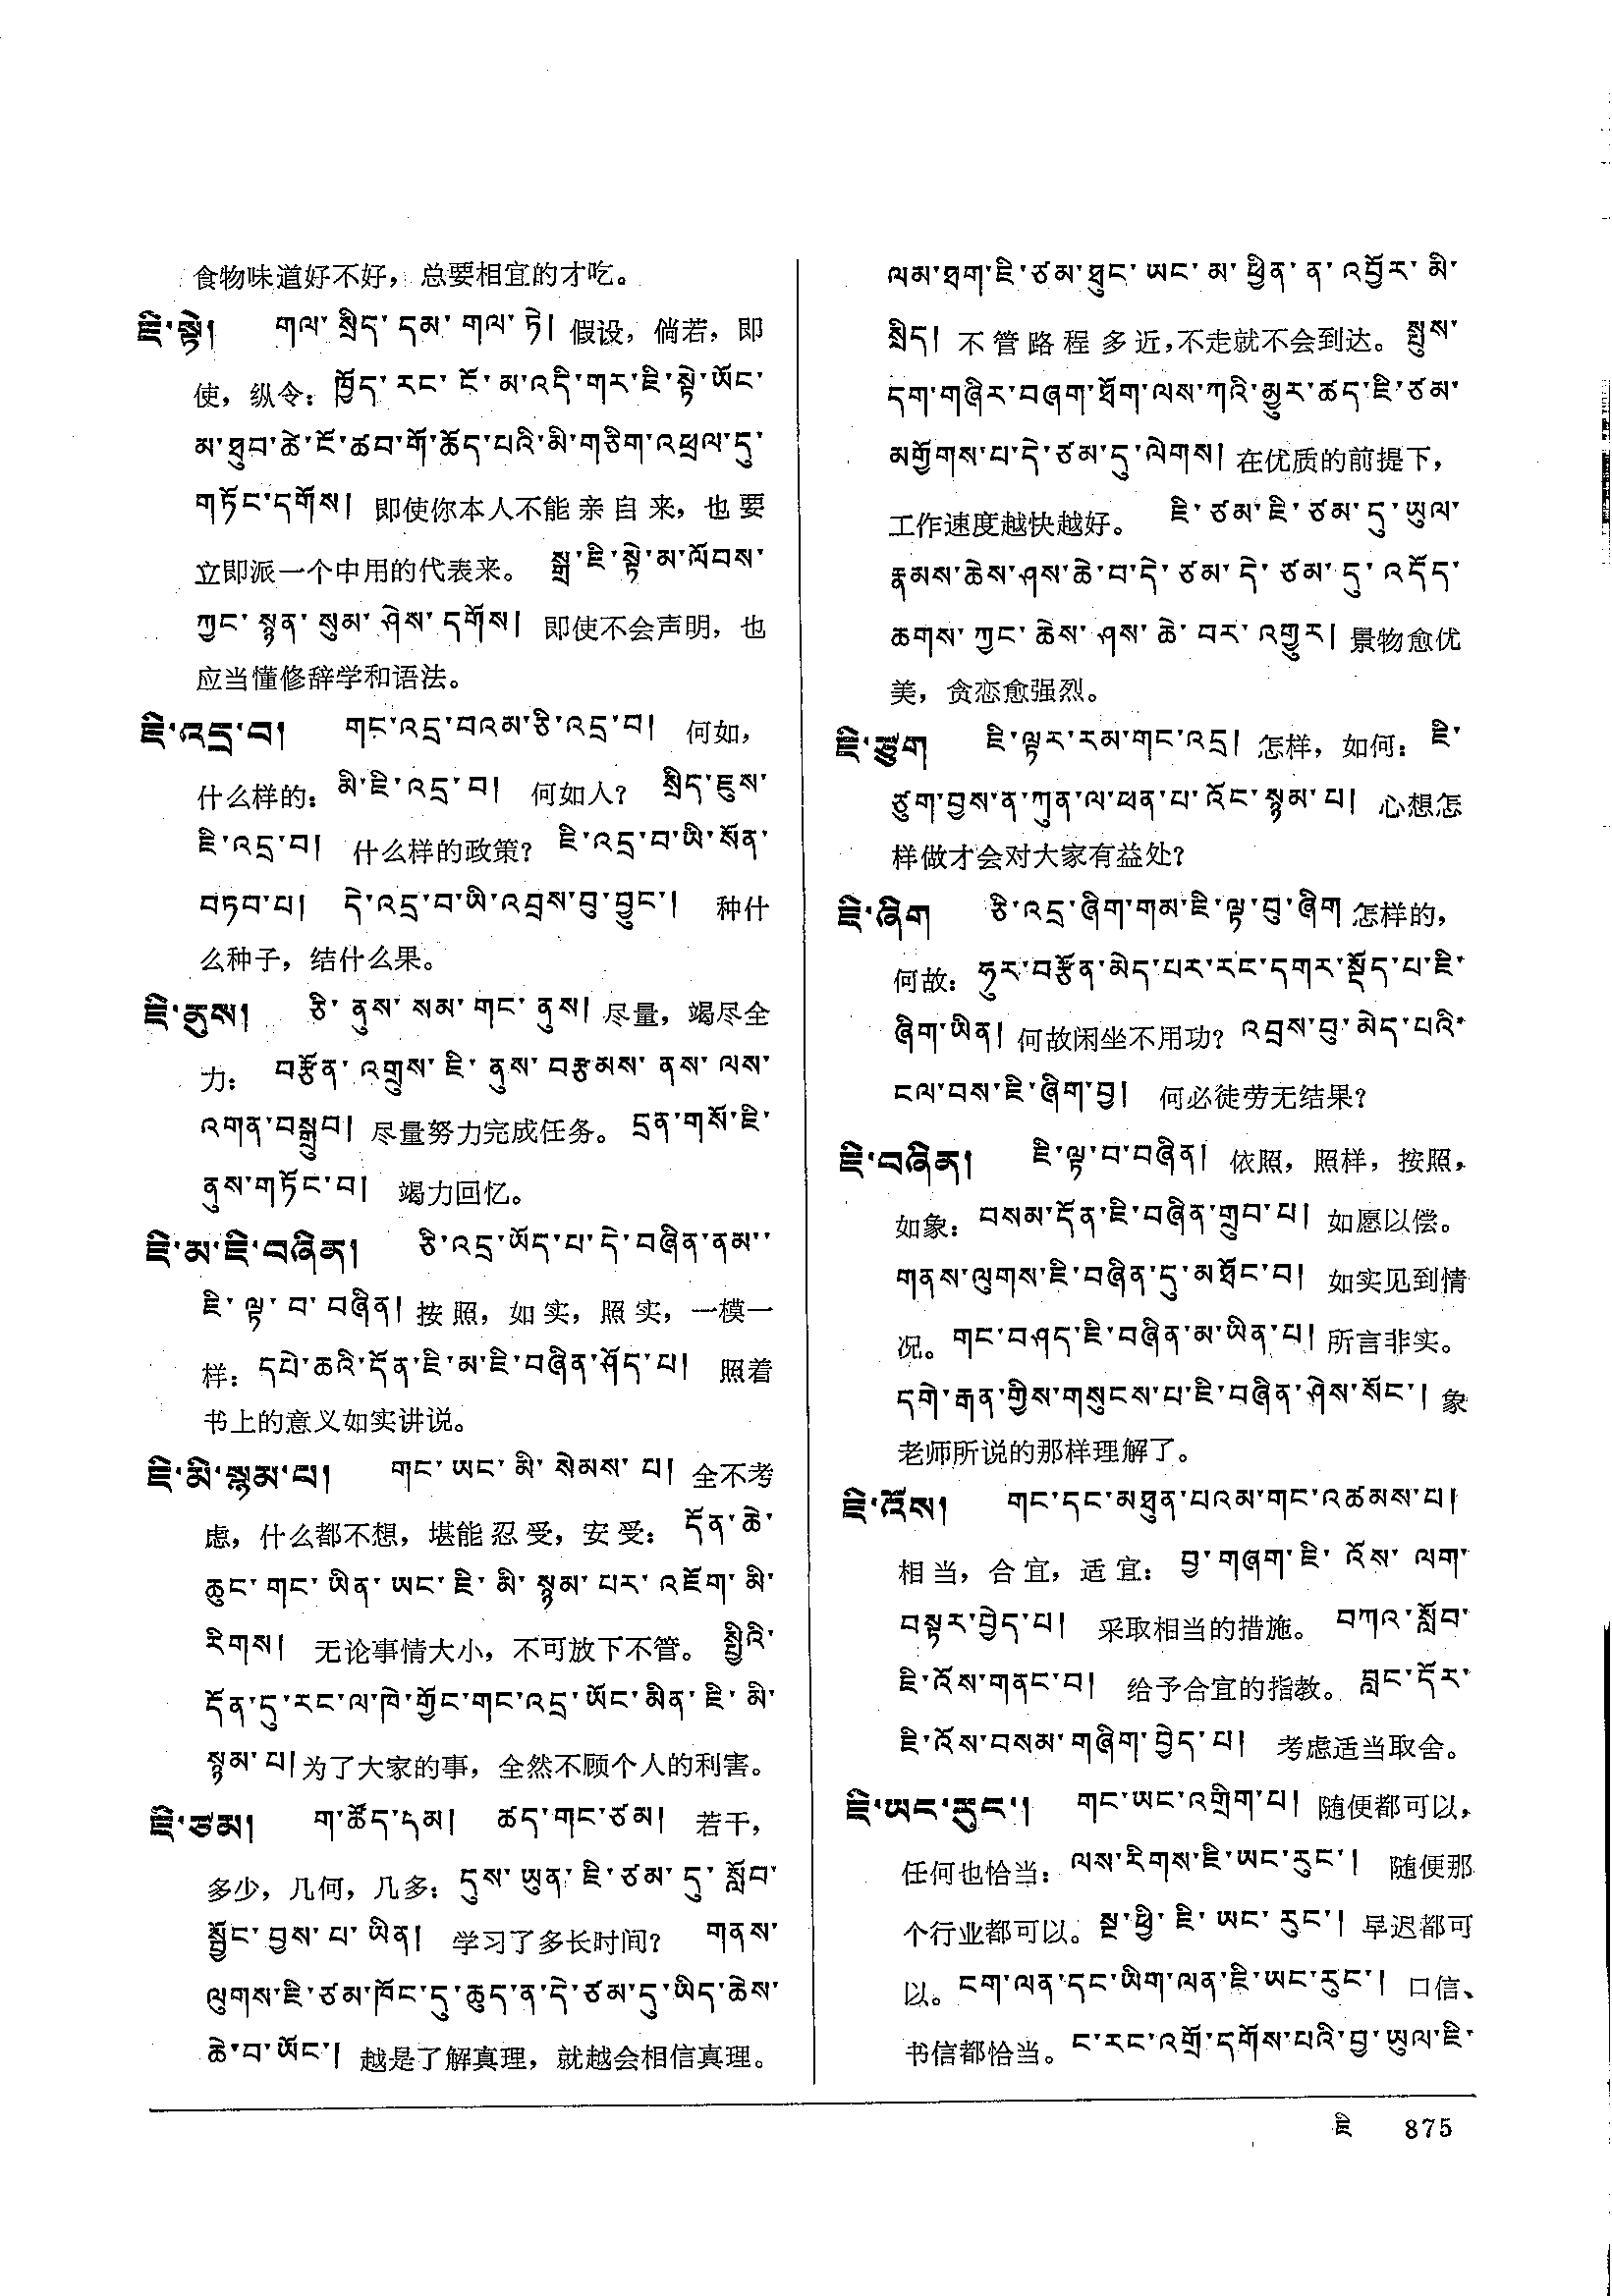 食物味道好不好，总要相宜的才吃。
ཇི་སྟེ། གལ་སྲིད་དམ་གལ་ཏེ། 假设，倘若，即
使，纵令：ཁྱོད་རང་ངོ་མ་འདི་གར་ཇི་སྟེ་ཡོང་
མ་ཐུབ་ཆེ་ངོ་ཚབ་གོ་ཆོད་པའི་མི་གཅིག་འཕྲལ་དུ་
གཏོང་དགོས། 即使你本人不能亲自来，也要
立即派一个中用的代表来。 སྒྲ་ཇི་སྟེ་མ་ལོབས་
ཀྱང་སྙན་སུམ་ཤེས་དགོས། 即使不会声明，也
应当懂修辞学和语法。
ཇི་འདྲ་བ། གང་འདྲ་བའམ་ཅི་འདྲ་བ། 何如，
什么样的：མི་ཇི་འདྲ་བ། 何如人？ སྲིད་ཇུས་
ཇི་འདྲ་བ། 什么样的政策？ ཇི་འདྲ་བ་ཡི་སོན་
བཏབ་པ། དེ་འདྲ་བ་ཡི་འབྲས་བུ་བྱུང་། 种什
么种子，结什么果。
ཇི་ནུས། ཅི་ནུས་སམ་གང་ནུས། 尽量，竭尽全
力： བརྩོན་འགྲུས་ཇི་ནུས་བརྩམས་ནས་ལས་
འགན་བསྒྲུབ། 尽量努力完成任务。དྲན་གསོ་ཇི་
ནུས་གཏོང་བ། 竭力回忆。
ཇི་མ་ཇི་བཞིན། ཅི་འདྲ་ཡོད་པ་དེ་བཞིན་ནམ་་
ཇི་ལྟ་བ་བཞིན། 按照，如实，照实，一模一
样：དཔེ་ཆའི་དོན་ཇི་མ་ཇི་བཞིན་ཤོད་པ། 照着
书上的意义如实讲说。
ཇི་མི་སྙམ་པ། གང་ཡང་མི་སེམས་པ། 全不考
虑，什么都不想，堪能忍受，安受：དོན་ཆེ་
ཆུང་གང་ཡིན་ཡང་ཇི་མི་སྙམ་པར་འཇོག་མི་
རིགས། 无论事情大小，不可放下不管。 སྤྱིའི་
དོན་དུ་རང་ལ་ཁེ་གྱོང་གང་འདྲ་ཡོང་མིན་ཇི་མི་
སྙམ་པ།为了大家的事，全然不顾个人的利害。
ཇི་ཙམ། ག་ཚོད་དམ། ཚད་གང་ཙམ། 若干，
多少，几何，几多：དུས་ཡུན་ཇི་ཙམ་དུ་སློབ་
སྦྱོང་བྱས་པ་ཡིན། 学习了多长时间？ གནས་
ལུགས་ཇི་ཙམ་ཁོང་དུ་ཆུད་ན་དེ་ཙམ་དུ་ཡིད་ཆེས་
ཆེ་བ་ཡོང་། 越是了解真理，就越会相信真理。
ལམ་ཐག་ཇི་ཙམ་ཐུང་ཡང་མ་ཕྱིན་ན་འབྱོར་མི་
སྲིད། 不管路程多近，不走就不会到达。 སྤུས་
དག་གཞིར་བཞག་ཐོག་ལས་ཀའི་མྱུར་ཚད་ཇི་ཙམ་
མགྱོགས་པ་དེ་ཙམ་དུ་ལེགས། 在优质的前提下，
工作速度越快越好。 ཇི་ཙམ་ཇི་ཙམ་དུ་ཡུལ་
རྣམས་ཆེས་ཤས་ཆེ་བ་དེ་ཙམ་དེ་ཙམ་དུ་འདོད་
ཆགས་ཀྱང་ཆེས་ཤས་ཆེ་བར་འགྱུར། 景物愈优
美，贪恋愈强烈。
ཇི་ཙུག ཇི་ལྟར་རམ་གང་འདྲ། 怎样，如何：ཇི་
ཙུག་བྱས་ན་ཀུན་ལ་ཕན་པ་འོང་སྙམ་པ། 心想怎
样做才会对大家有益处？
ཇི་ཞིག ཅི་འདྲ་ཞིག་གམ་ཇི་ལྟ་བུ་ཞིག 怎样的，
何故：ཧུར་བརྩོན་མེད་པར་རང་དགར་སྡོད་པ་ཇི་
ཞིག་ཡིན། 何故闲坐不用功？འབྲས་བུ་མེད་པའི་
ངལ་བས་ཇི་ཞིག་བྱ། 何必徒劳无结果？
ཇི་བཞིན། ཇི་ལྟ་བ་བཞིན། 依照，照样，按照，
如象：བསམ་དོན་ཇི་བཞིན་གྲུབ་པ། 如愿以偿。
གནས་ལུགས་ཇི་བཞིན་དུ་མཐོང་བ། 如实见到情
况。གང་བཤད་ཇི་བཞིན་མ་ཡིན་པ། 所言非实。
དགེ་རྒན་གྱིས་གསུངས་པ་ཇི་བཞིན་ཤེས་སོང་། 象
老师所说的那样理解了。
ཇི་འོས། གང་དང་མཐུན་པའམ་གང་འཚམས་པ།
相当，合宜，适宜：བྱ་གཞག་ཇི་འོས་ལག་
བསྟར་བྱེད་པ། 采取相当的措施。 བཀའ་སློབ་
ཇི་འོས་གནང་བ། 给予合宜的指教。 བླང་དོར་
ཇི་འོས་བསམ་གཞིག་བྱེད་པ། 考虑适当取舍。
ཇི་ཡང་རུང་། གང་ཡང་འགྲིག་པ། 随便都可以，
任何也恰当：ལས་རིགས་ཇི་ཡང་རུང་། 随便那
个行业都可以。སྔ་ཕྱི་ཇི་ཡང་རུང་། 早迟都可
以。ངག་ལན་དང་ཡིག་ལན་ཇི་ཡང་རུང་། 口信、
书信都恰当。ང་རང་འགྲོ་དགོས་པའི་བྱ་ཡུལ་ཇི་
ཇི 875